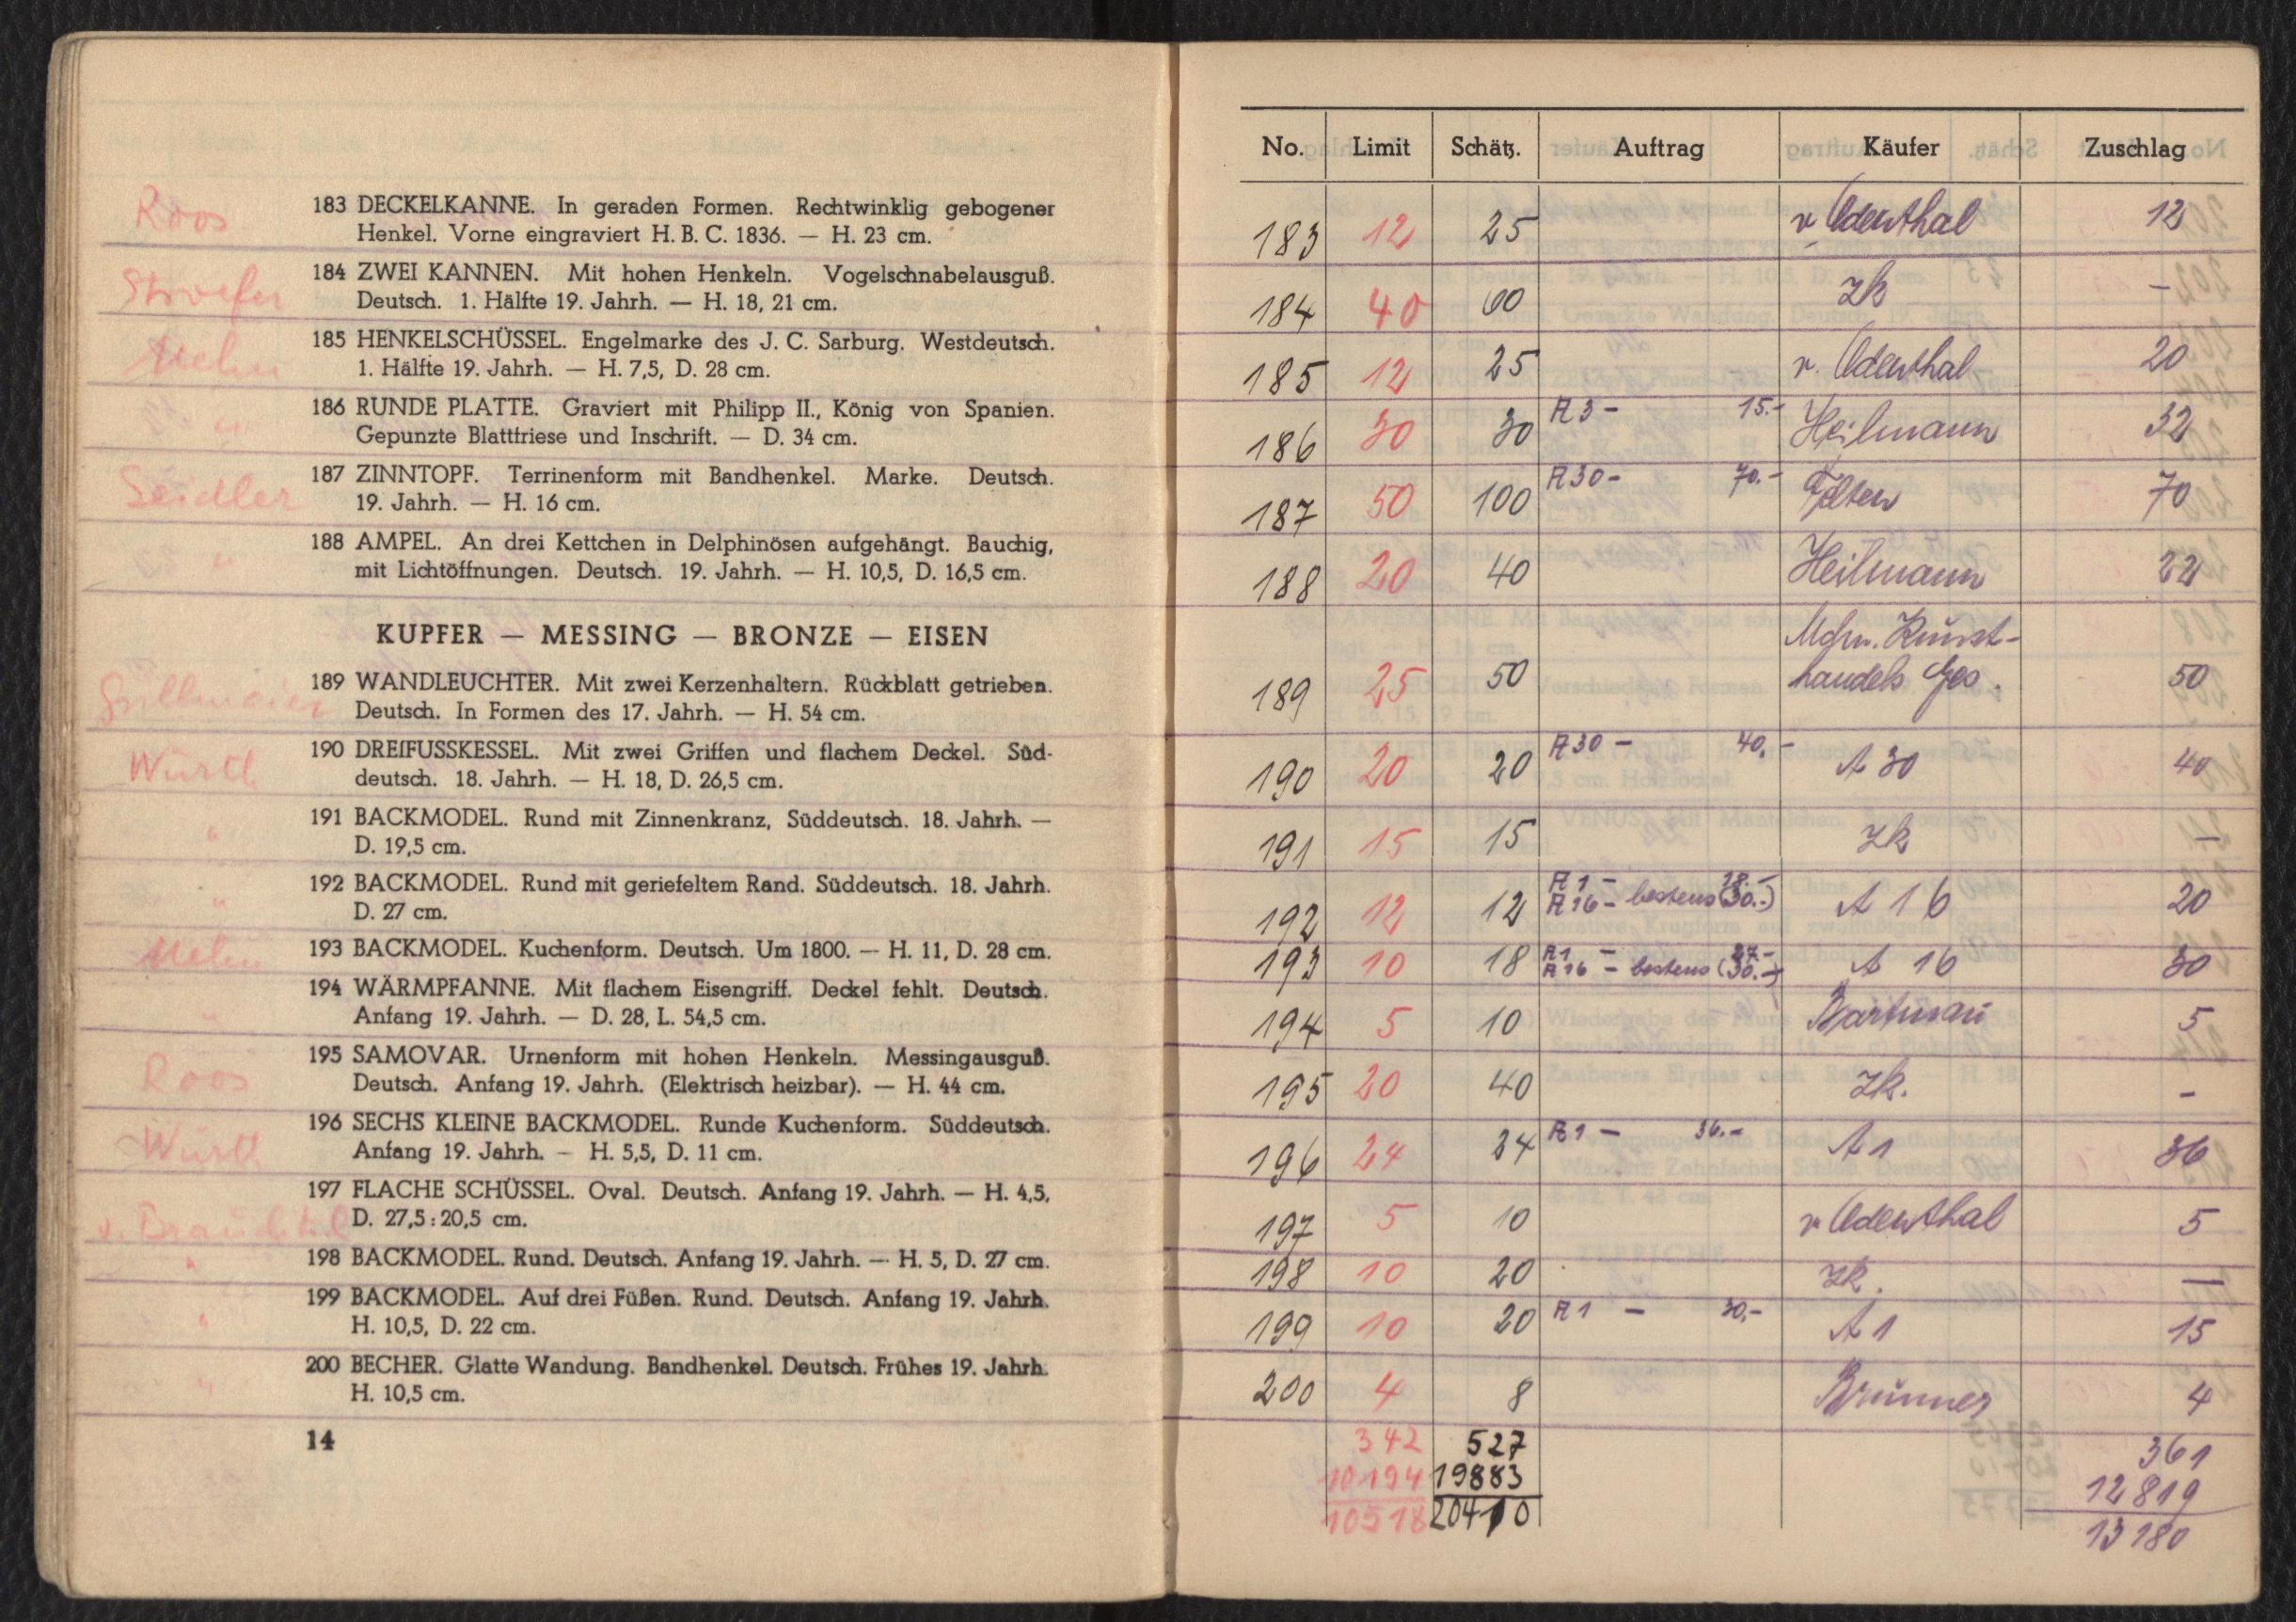 Roos
183 DECKELKANNE. In geraden Formen. Rechtwinklig gebogener
Henkel. Vorne eingraviert H. B. C. 1836. — H. 23 cm.
Stroefer
184 ZWEI KANNEN. Mit hohen Henkeln. Vogelschnabelausguß.
Deutsch. 1. Hälfte 19. Jahrh. — H. 18, 21 cm.
185 HENKELSCHÜSSEL. Engelmarke des J. C. Sarburg. Westdeutsch.
1. Hälfte 19. Jahrh. — H. 7,5, D. 28 cm.
"
186 RUNDE PLATTE. Graviert mit Philipp II., König von Spanien.
Gepunzte Blattfriese und Inschrift. — D. 34 cm.
Seidler
187 ZINNTOPF. Terrinenform mit Bandhenkel. Marke. Deutsch.
19. Jahrh. — H. 16 cm.
"
188 AMPEL. An drei Kettchen in Delphinösen aufgehängt. Bauchig,
mit Lichtöffnungen. Deutsch. 19. Jahrh. — H. 10,5, D. 16,5 cm.
KUPFER — MESSING — BRONZE — EISEN
189 WANDLEUCHTER. Mit zwei Kerzenhaltern. Rückblatt getrieben.
Deutsch. In Formen des 17. Jahrh. — H. 54 cm.
Würtl
190 DREIFUSSKESSEL. Mit zwei Griffen und flachem Deckel. Süd-
deutsch. 18. Jahrh. — H. 18, D. 26,5 cm.
"
191 BACKMODEL. Rund mit Zinnenkranz, Süddeutsch. 18. Jahrh. —
D. 19,5 cm.
"
192 BACKMODEL. Rund mit geriefeltem Rand. Süddeutsch. 18. Jahrh.
D. 27 cm.
193 BACKMODEL. Kuchenform. Deutsch. Um 1800. — H. 11, D. 28 cm.
"
194 WÄRMPFANNE. Mit flachem Eisengriff. Deckel fehlt. Deutsch.
Anfang 19. Jahrh. — D. 28, L. 54,5 cm.
Roos
195 SAMOVAR. Urnenform mit hohen Henkeln. Messingausguß.
Deutsch. Anfang 19. Jahrh. (Elektrisch heizbar). — H. 44 cm.
Würtl
196 SECHS KLEINE BACKMODEL. Runde Kuchenform. Süddeutsch.
Anfang 19. Jahrh. — H. 5,5, D. 11 cm.
197 FLACHE SCHÜSSEL. Oval. Deutsch. Anfang 19. Jahrh. — H. 4,5,
D. 27,5 : 20,5 cm.
"
198 BACKMODEL. Rund. Deutsch. Anfang 19. Jahrh. — H. 5, D. 27 cm.
"
199 BACKMODEL. Auf drei Füßen. Rund. Deutsch. Anfang 19. Jahrh.
H. 10,5, D. 22 cm.
"
200 BECHER. Glatte Wandung. Bandhenkel. Deutsch. Frühes 19. Jahrh.
H. 10,5 cm.
14
No. Limit Schätz. Auftrag Käufer Zuschlag
183 12 25 v Odenthal 12
184 40 60 zk —
185 12 25 v. Odenthal 20
186 30 30 A 3 — 15.- Heilmann 32
187 50 100 A 30 - 70.- Felten 70
188 20 40 Heilmann 22
Mchn. Kunst-
189 25 50 handels Ges. 50
190 20 20 A 30 — 40.- A 30 40
191 15 15 zk —
A 1 — 18.-
192 12 12 A 16 - bestens (30.-) A 16 20
A 1 — 27.-
193 10 18 A 16 - bestens (30.-) A 16 30
194 5 10 Bartman 5
195 20 40 zk. -
196 24 24 A 1 — 36.- A 1 36
197 5 10 v Odenthal 5
198 10 20 zk. —
199 10 20 A 1 — 30,- A 1 15
200 4 8 Brunner 4
342 527 361
10194 19883 12819
10518 20410 13180